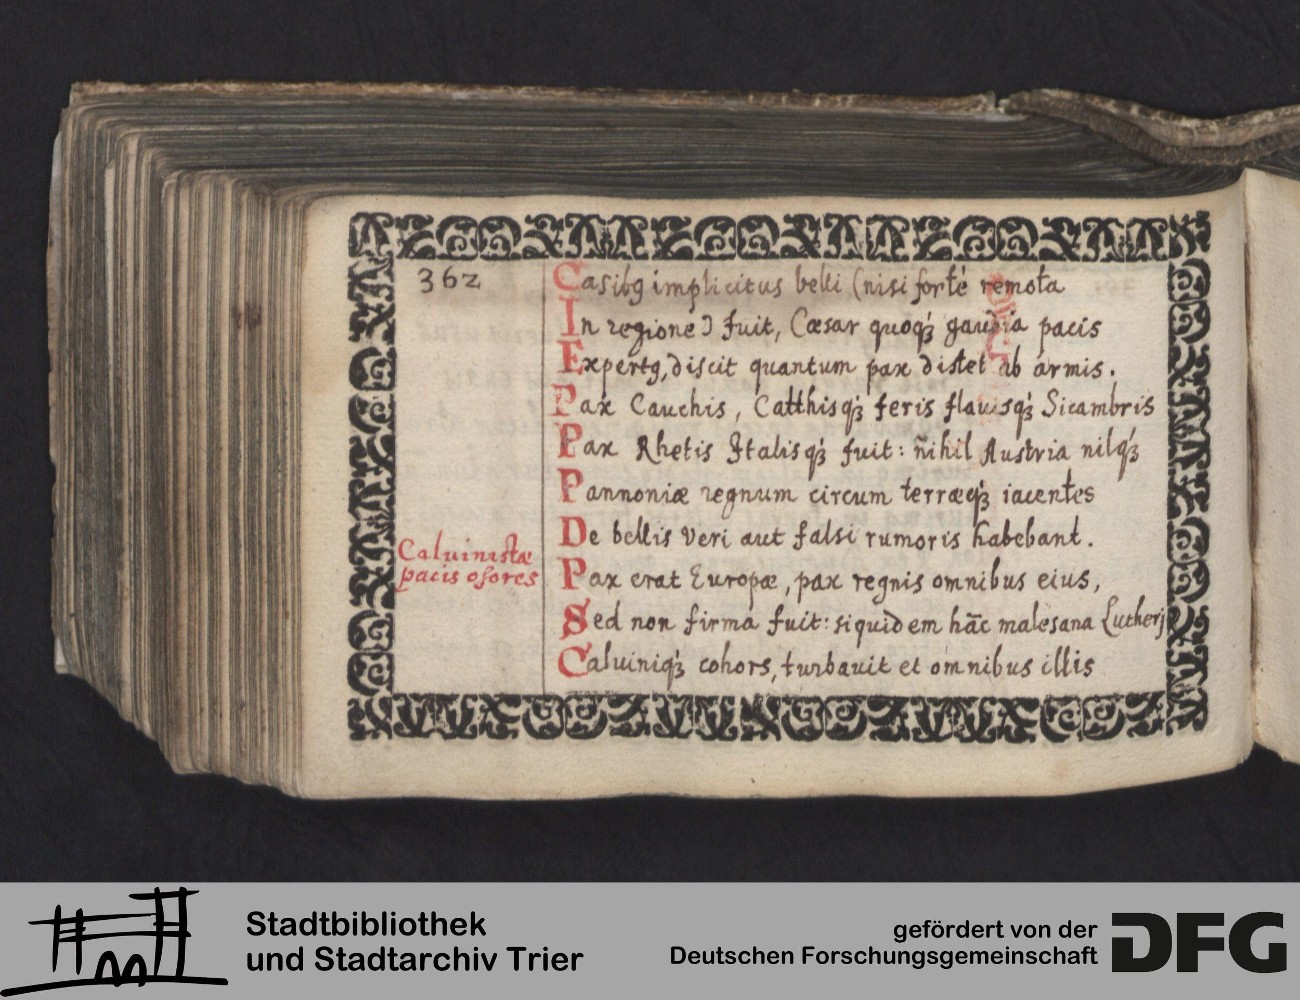 362
Casibꝯ implicitus belli (nisi forté remota
In regione) fuit, Cæsar quoqꝫ gaudia pacis
Expertꝯ, discit quantum pax distet ab armis.
Pax Cauchis, Catthisqꝫ feris flauisqꝫ Sicambris
Pax Rhetis Italisqꝫ fuit: nihil Austria nilqꝫ
Pannoniæ regnum circum terræqꝫ iacentes
De bellis veri aut falsi rumoris habebant.
Caluinistæ
pacis osores
Pax erat Europæ, pax regnis omnibus eius,
Sed non firma fuit: siquidem hāc malesana Lutherj
Caluiniqꝫ cohors, turbauit et omnibus illis
Stadtbibliothek
und Stadtarchiv Trier
gefördert von der
Deutschen Forschungsgemeinschaft
DFG